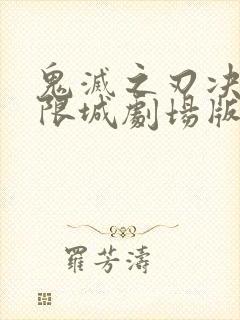 鬼滅之刃决
限城劇場版
羅芳濤